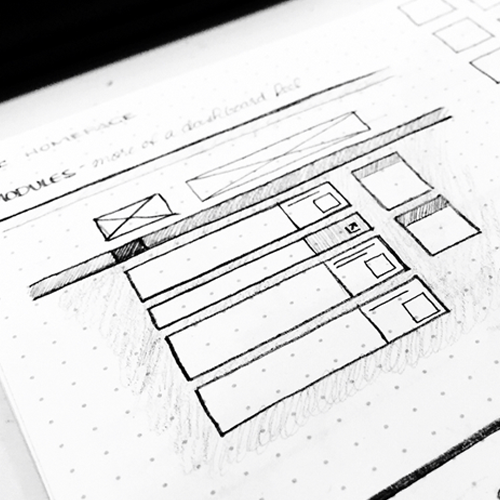 HOMEPAGE
MODULES - more of a dashboard feel